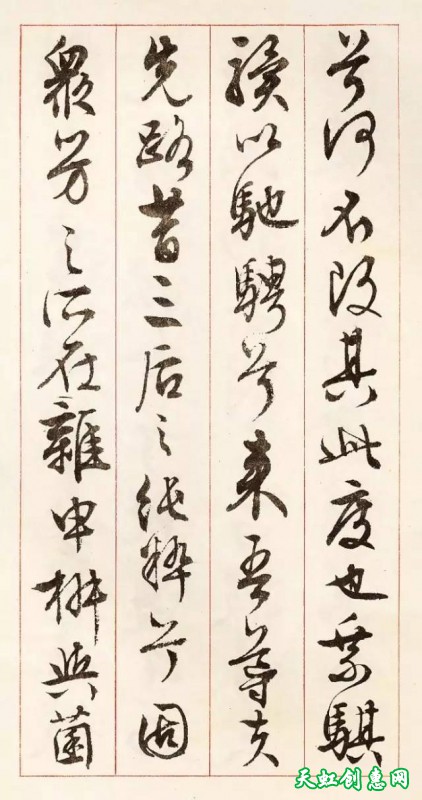 兮何不改其此度也乘騏
驥以馳騁兮来吾導夫
先路昔三后之純粹兮固
衆芳之所在雜申椒與菌
天虹创惠网